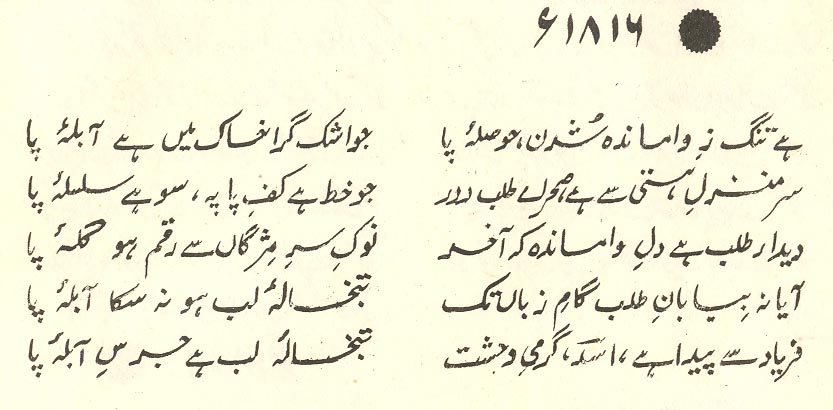 ۱۸۱۶ء
ہے تنگ زِ واماندہ شُدن، حوصلۂ پا جو اشک گرا خاک میں ہے آبلۂ پا
سر منزلِ ہستی سے ہے صحرائے طلب دور جو خط ہے کفِ پا پہ، سو ہے سلسلۂ پا
دیدار طلب ہے دلِ واماندہ کہ آخر نوکِ سرِ مِژگاں سے رقم ہو گلۂ پا
آیا نہ بیابانِ طلب گامِ زباں تک تبخالۂ لب ہو نہ سکا آبلۂ پا
فریاد سے پیدا ہے، اسدؔ، گرمیِ وحشت تبخالۂ لب ہے جرسِ آبلۂ پا